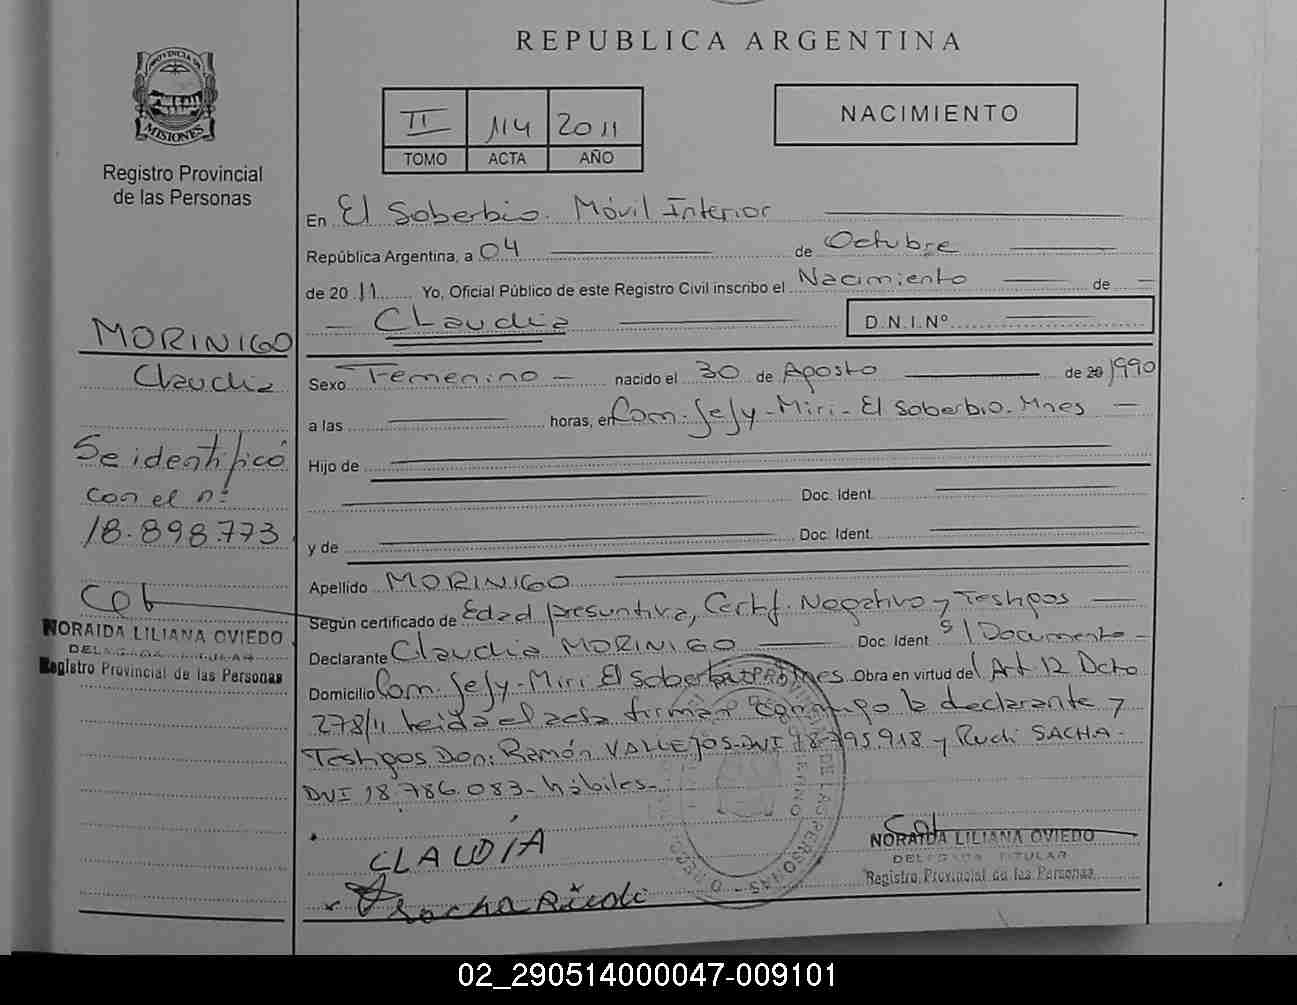 REPUBLICA ARGENTINA
PROVINCIA DE
MISIONES
Registro Provincial
de las Personas
II 114 2011
TOMO ACTA AÑO
NACIMIENTO
En El Soberbio. Móvil Interior
República Argentina, a 04 de Octubre
de 20 11 Yo, Oficial Público de este Registro Civil inscribo el Nacimiento de
Claudia D.N.I.Nº
MORINIGO
Claudia
Se identificó
con el nº
18.898.773
Sexo Femenino nacido el 30 de Agosto de 20 1990
a las horas, en Com. Jejy-Miri-El Soberbio. Mnes
Hijo de
Doc. Ident.
y de Doc. Ident.
Apellido MORINIGO
Según certificado de Edad presuntiva, Certf. Negativo y Testigos
Declarante Claudia MORINIGO Doc. Ident S/Documento
Domicilio Com. Jejy-Miri El Soberbio Mnes Obra en virtud del Art 12 Dcto
278/11 leida el acta firman conmigo la declarante y
Testigos Don: Ramón VALLEJOS-DNI 18.795.918 y Rudi SACHA-
DNI 18.786.083- hábiles-
NORAIDA LILIANA OVIEDO
DELEGADA TITULAR
Registro Provincial de las Personas
CLAUDIA
NORAIDA LILIANA OVIEDO
DELEGADA TITULAR
Registro Provincial de las Personas
DE LAS PERSONAS
02_290514000047-009101